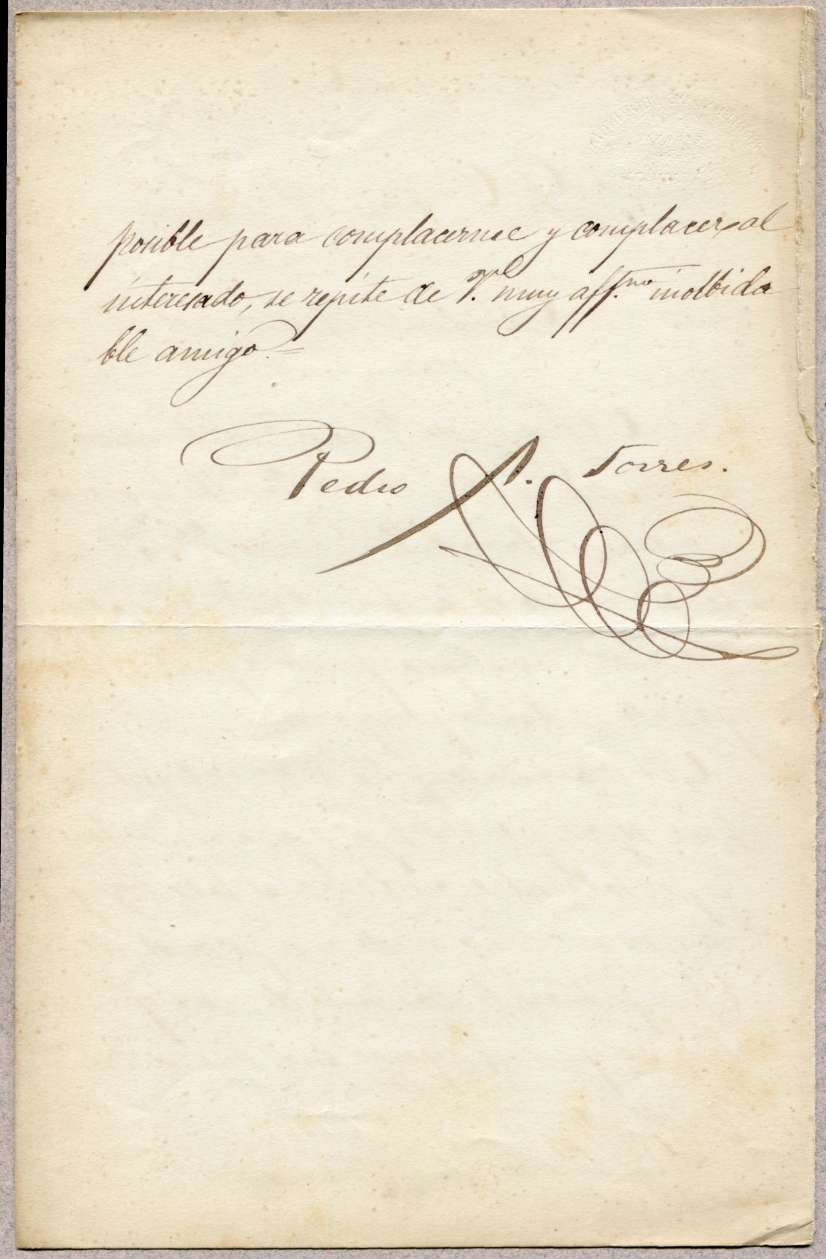 posible para complacerme y complacer al
interesado, se repite de V. muy aff.mo inolbida
ble amigo.=
Pedro A. Torres.